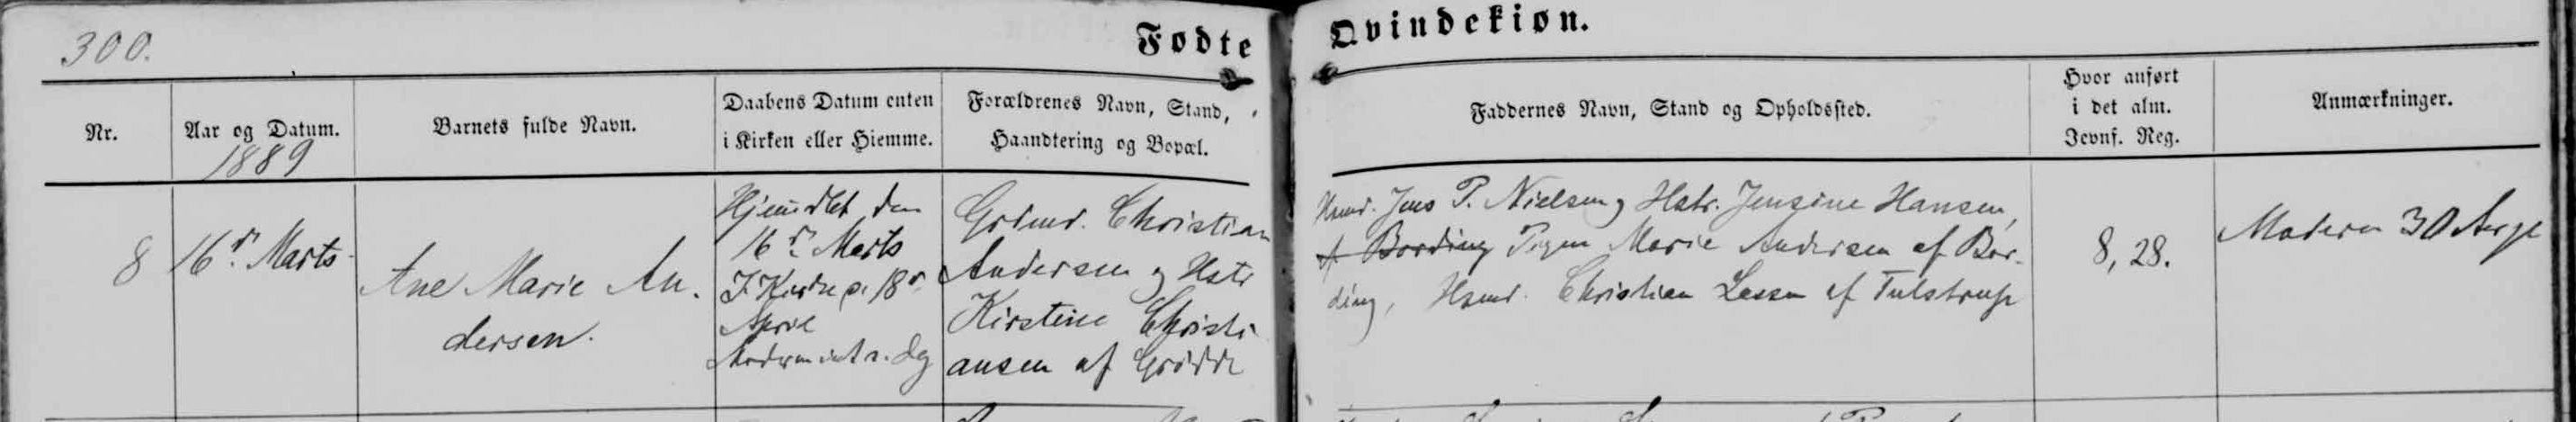 300.
Fødte
Qvindekiøn.
Nr.
Aar og Datum.
1889
Barnets fulde Navn.
Daabens Datum enten
i Kirken eller Hiemme.
Forældrenes Navn, Stand,
Haandtering og Bopæl.
Faddernes Navn, Stand og Opholdssted.
Hvor anført
i det alm.
Jevnf. Reg.
Anmærkninger.
8
16d. Marts
Ane Marie An-
dersen.
Hjemdbt den
16d. Marts
I Kirke 18d.
April
s. Dg
Grdmd. Christian
Andersen og Hstr
Kirstine Christi
ansen af Grødde
Hsmd. Jens P. Nielsen og Hstr. Jensine Hansen,
af Bording Pigen Marie Andersen af Bor-
ding, Hsmd. Christian Lassen af Tulstrup
8, 28.
Moderen 30 Aar gl